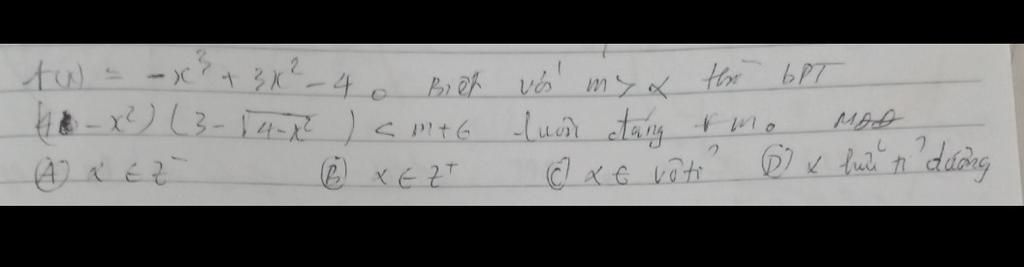 f(x) = -x³ + 3x² - 4. Biết với m > α thì BPT
(4 - x²)(3 - √(4-x²)) < m+6 luôn đúng ∀ m.
Ⓐ α ∈ Z⁻ Ⓑ α ∈ Z⁺ Ⓒ α ∈ vô tỉ Ⓓ α hữu tỉ dương